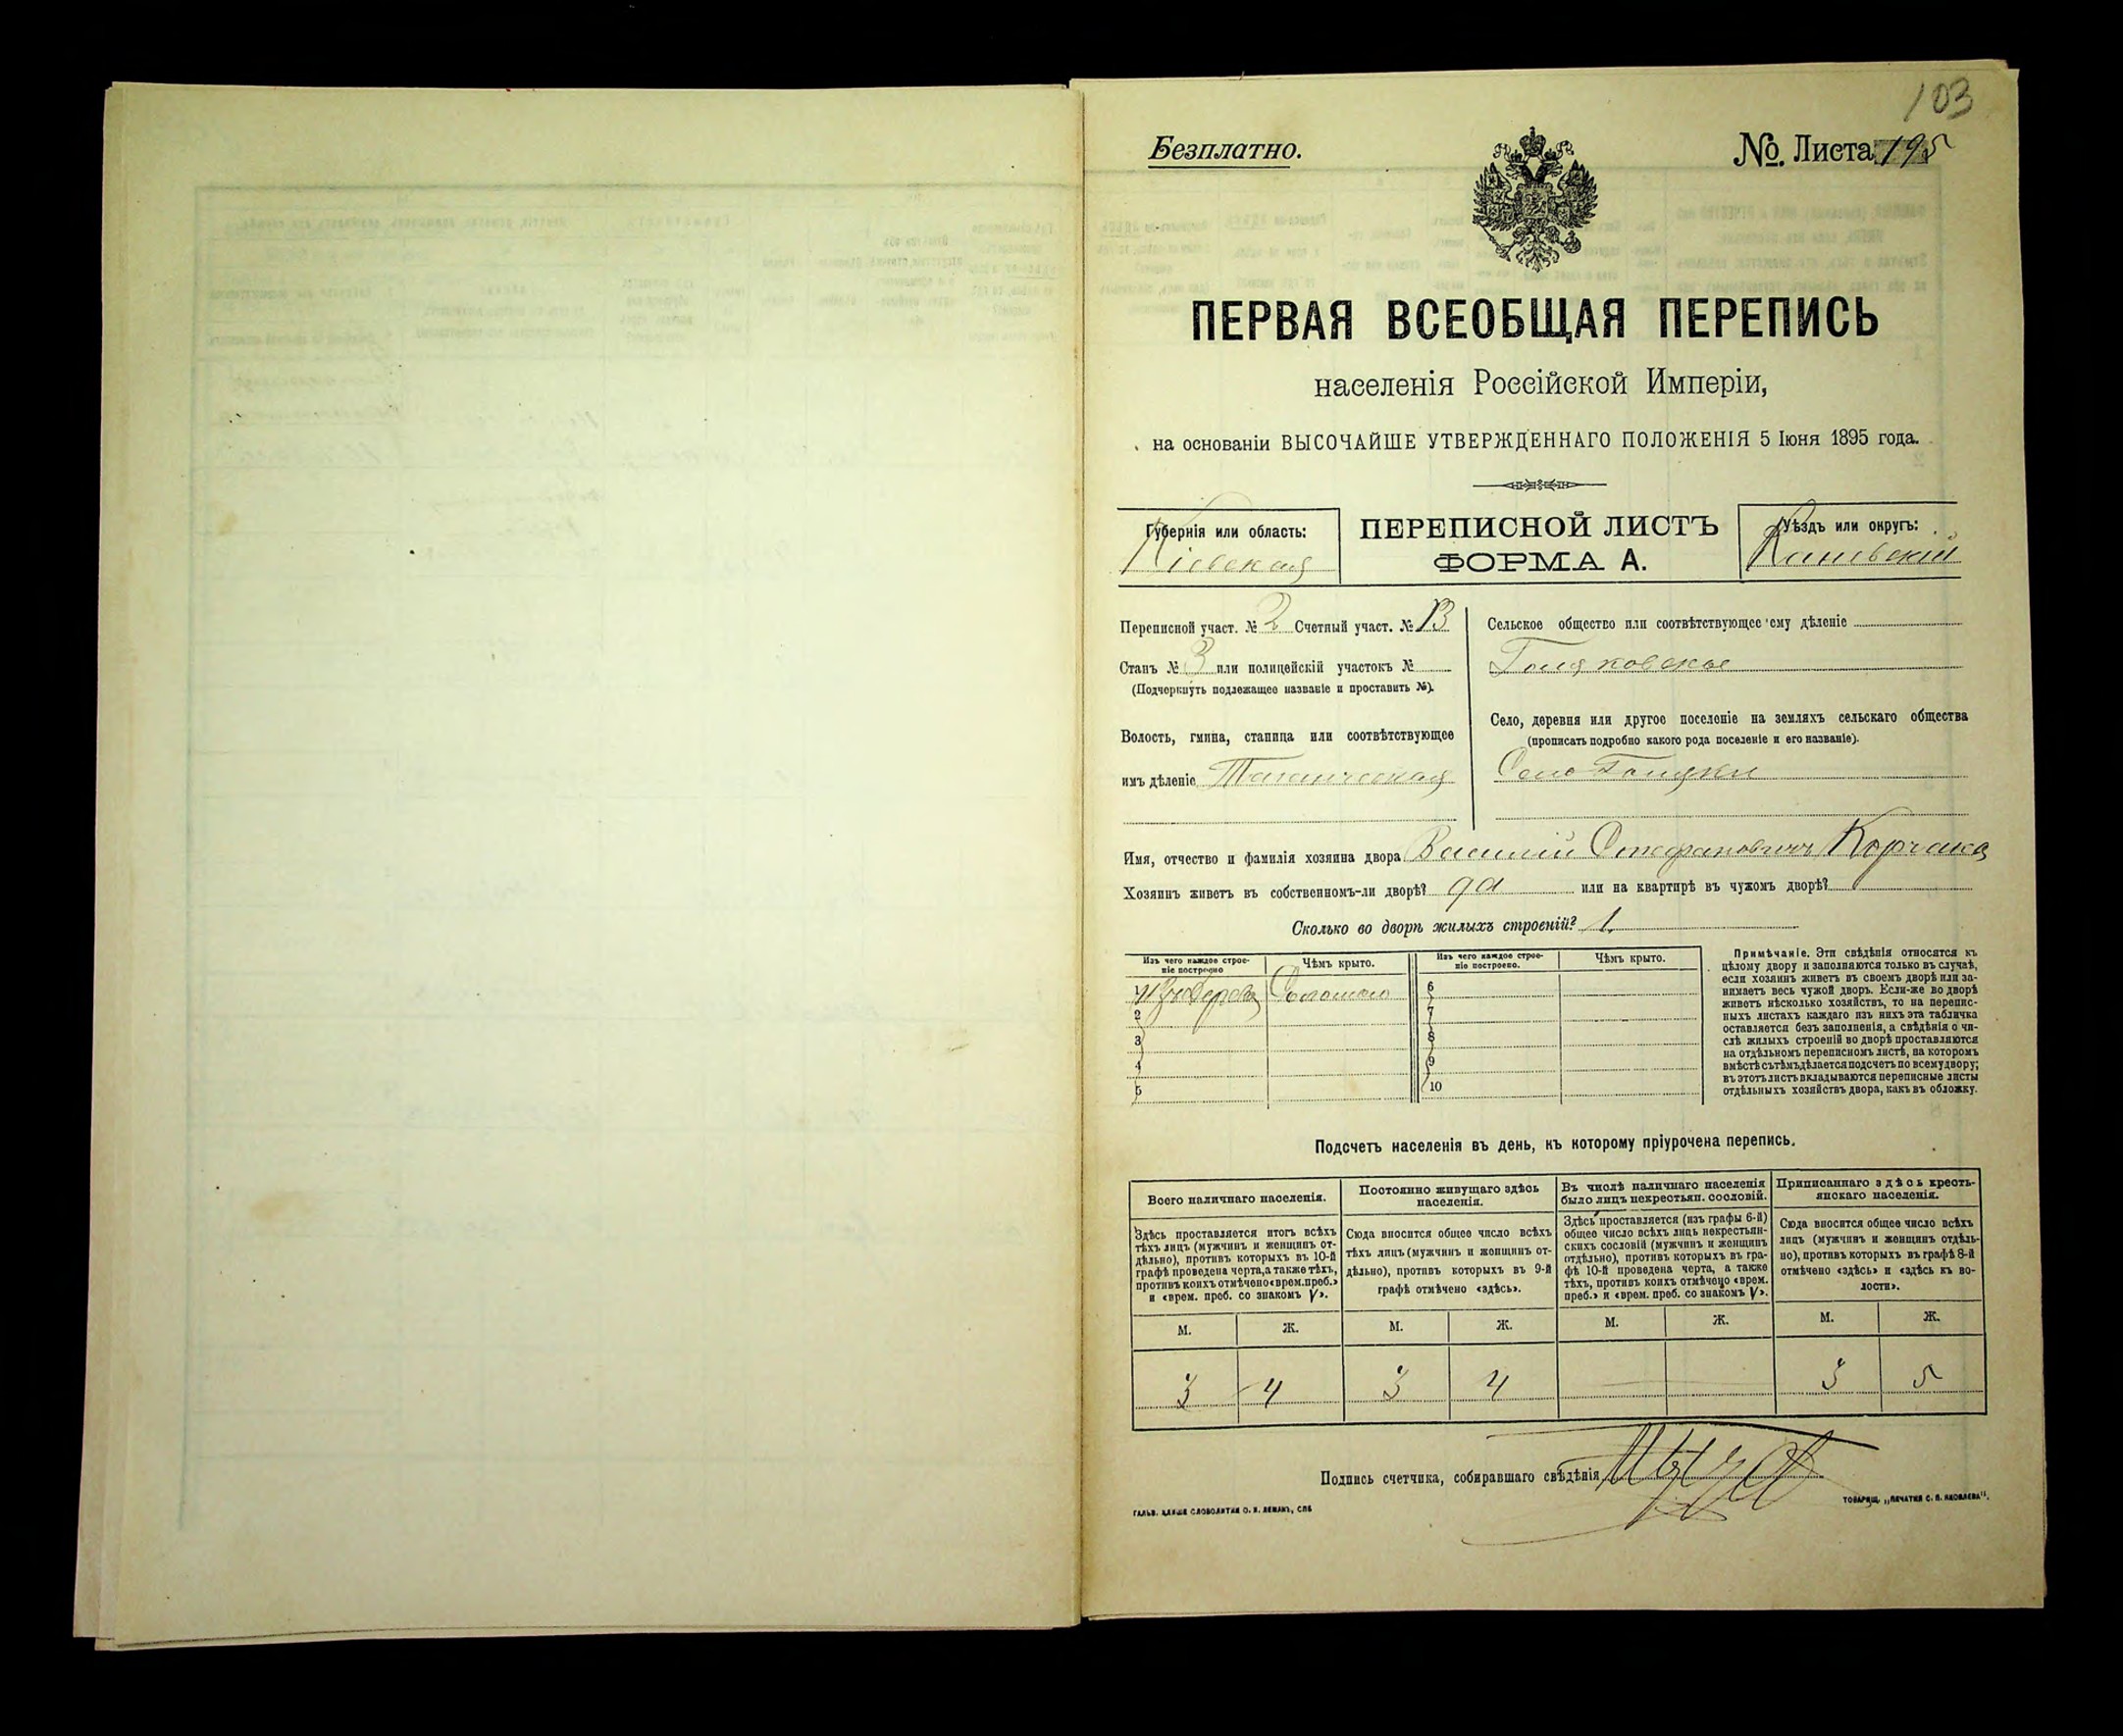 103
Безплатно.
№. Листа 195
ПЕРВАЯ ВСЕОБЩАЯ ПЕРЕПИСЬ
населенія Россійской Имперіи,
на основаніи ВЫСОЧАЙШЕ УТВЕРЖДЕННАГО ПОЛОЖЕНІЯ 5 Іюня 1895 года.
Губернія или область:
Кіевская
ПЕРЕПИСНОЙ ЛИСТЪ
ФОРМА А.
Уѣздъ или округъ:
Каневскій
Переписной участ. № 2 Счетный участ. № 13
Станъ № 3 или полицейскій участокъ №
(Подчеркнуть подлежащее названіе и проставить №).
Волость, гмина, станица или соотвѣтствующее
имъ дѣленіе Таганческая
Сельское общество или соотвѣтствующее ему дѣленіе
Голяковское
Село, деревня или другое поселеніе на земляхъ сельскаго общества
(прописать подробно какого рода поселеніе и его названіе).
Село Голяки
Имя, отчество и фамилія хозяина двора Василій Стефановичъ Корчака
Хозяинъ живетъ въ собственномъ-ли дворѣ? да или на квартирѣ въ чужомъ дворѣ?
Сколько во дворѣ жилыхъ строеній? 1.
Изъ чего каждое строе-
ніе построено
Чѣмъ крыто.
Изъ чего каждое строе-
ніе построено.
Чѣмъ крыто.
1 Изъ дерева Соломою
2
3
4
5
6
7
8
9
10
Примѣчаніе. Эти свѣдѣнія относятся къ
цѣлому двору и заполняются только въ случаѣ,
если хозяинъ живетъ въ своемъ дворѣ или за-
нимаетъ весь чужой дворъ. Если-же во дворѣ
живетъ нѣсколько хозяйствъ, то на перепис-
ныхъ листахъ каждаго изъ нихъ эта табличка
оставляется безъ заполненія, а свѣдѣнія о чи-
слѣ жилыхъ строеній во дворѣ проставляются
на отдѣльномъ переписномъ листѣ, на которомъ
вмѣстѣ съ тѣмъ дѣлается подсчетъ по всему двору;
въ этотъ листъ вкладываются переписные листы
отдѣльныхъ хозяйствъ двора, какъ въ обложку.
Подсчетъ населенія въ день, къ которому пріурочена перепись.
Всего наличнаго населенія.
Здѣсь проставляется итогъ всѣхъ
тѣхъ лицъ (мужчинъ и женщинъ от-
дѣльно), противъ которыхъ въ 10-й
графѣ проведена черта, а также тѣхъ,
противъ коихъ отмѣчено «врем. преб.»
и «врем. преб. со знакомъ V».
Постоянно живущаго здѣсь
населенія.
Сюда вносится общее число всѣхъ
тѣхъ лицъ (мужчинъ и женщинъ от-
дѣльно), противъ которыхъ въ 9-й
графѣ отмѣчено «здѣсь».
Въ числѣ наличнаго населенія
было лицъ некрестьян. сословій.
Здѣсь проставляется (изъ графы 6-й)
общее число всѣхъ лицъ некрестьян-
скихъ сословій (мужчинъ и женщинъ
отдѣльно), противъ которыхъ въ гра-
фѣ 10-й проведена черта, а также
тѣхъ, противъ коихъ отмѣчено «врем.
преб.» и «врем. преб. со знакомъ V».
Приписаннаго здѣсь кресть-
янскаго населенія.
Сюда вносится общее число всѣхъ
лицъ (мужчинъ и женщинъ отдѣль-
но), противъ которыхъ въ графѣ 8-й
отмѣчено «здѣсь» и «здѣсь къ во-
лости».
М. Ж. М. Ж. М. Ж. М. Ж.
3 4 3 4 3 5
Подпись счетчика, собиравшаго свѣдѣнія
ГАЛЬВ. КЛИШЕ СЛОВОЛИТНИ О. И. ЛЕМАНЪ, СПБ
ТОВАРИЩ. „ПЕЧАТНЯ С. П. ЯКОВЛЕВА".